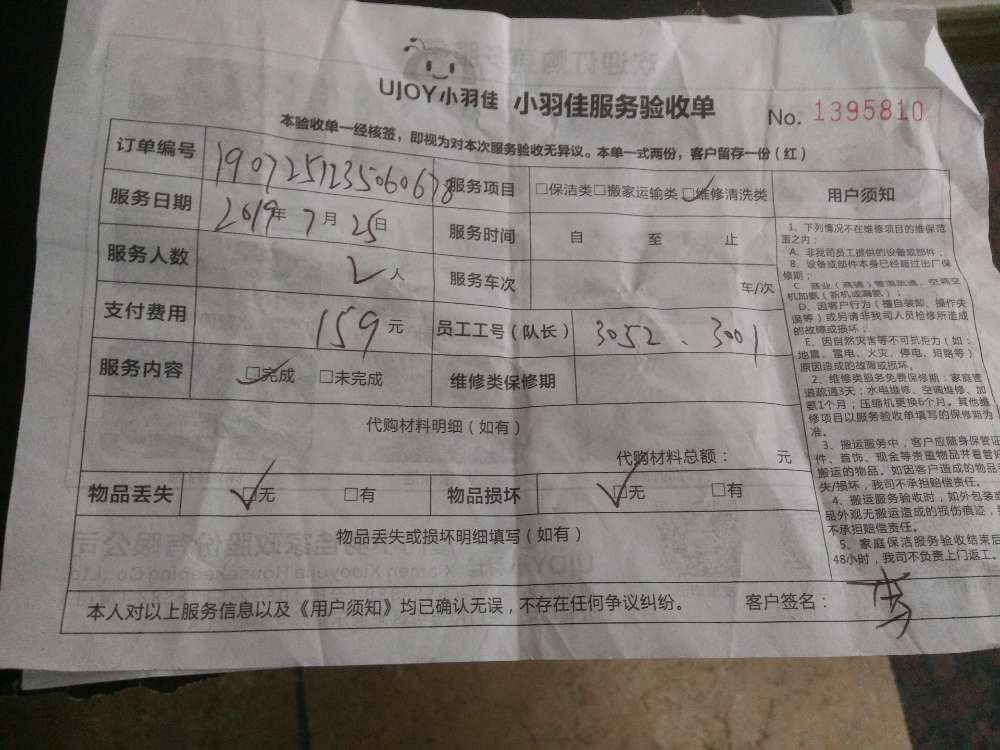 UJOY小羽佳 小羽佳服务验收单
No. 1395810
本验收单一经核签，即视为对本次服务验收无异议。本单一式两份，客户留存一份（红）
订单编号 1907251235060678 服务项目 □保洁类□搬家运输类□维修清洗类 用户须知
服务日期 2019年 7月 25日 服务时间 自 至 止
服务人数 2人 服务车次 车/次
支付费用 159元 员工工号（队长） 3052、3001
服务内容 □完成 □未完成 维修类保修期
代购材料明细（如有）
代购材料总额： 元
物品丢失 □无 □有 物品损坏 □无 □有
物品丢失或损坏明细填写（如有）
本人对以上服务信息以及《用户须知》均已确认无误，不存在任何争议纠纷。 客户签名：
1、下列情况不在维修项目的维保范
围之内：
A、非我司员工提供的设备或部件；
B、设备或部件本身已经超过出厂保
修期；
C、商业（商铺）管道疏通、空调空
机加氨（新机或漏氨）；
D、因客户行为（擅自装卸、操作失
误等）或另请非我司人员检修所造成
的故障或损坏；
E、因自然灾害等不可抗拒力（如：
地震、雷电、火灾、停电、短路等）
原因造成的故障或损坏。
2、维修类服务免费保修期：家庭管
道疏通3天；水电维修、空调维修、加
氨1个月；压缩机更换6个月。其他维
修项目以服务验收单填写的保修期为
准。
3、搬运服务中，客户应随身保管证
件、首饰、现金等贵重物品并看管好
搬运的物品，如因客户造成的物品
失/损坏，我司不承担赔偿责任。
4、搬运服务验收时，如外包装或
品外观无搬运造成的损伤痕迹，
不承担赔偿责任。
5、家庭保洁服务验收结束后
48小时，我司不负责上门返工。